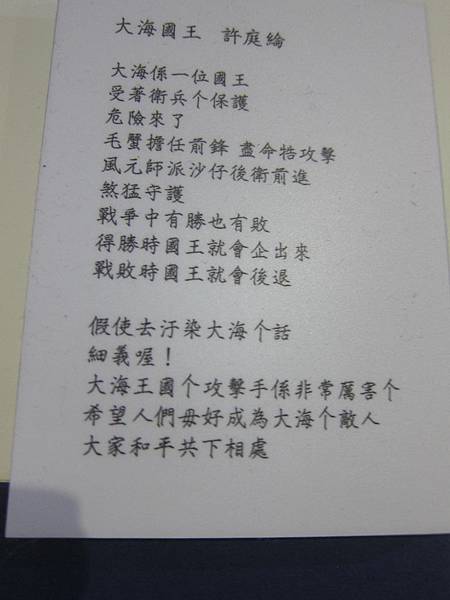 大海國王　許庭綸
大海係一位國王
受著衛兵个保護
危險來了
毛蟹擔任前鋒 盡命牯攻擊
風元師派沙仔後衛前進
煞猛守護
戰爭中有勝也有敗
得勝時國王就會企出來
戰敗時國王就會後退
假使去汙染大海个話
細義喔！
大海王國个攻擊手係非常厲害个
希望人們毋好成為大海个敵人
大家和平共下相處